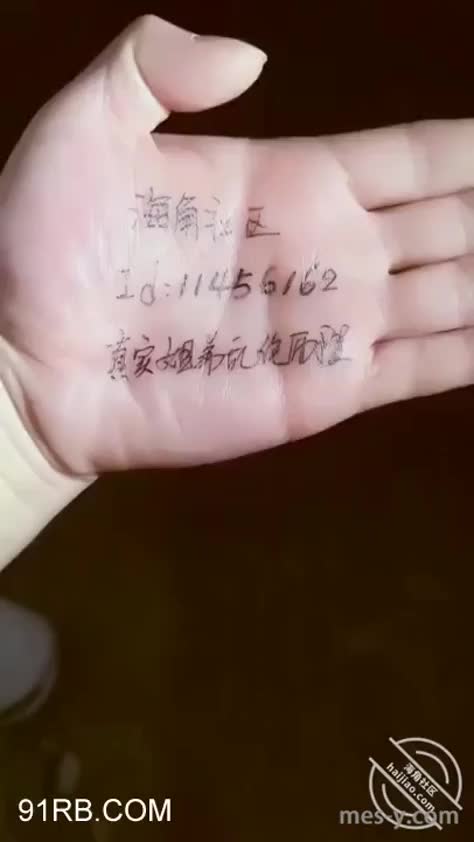 海角社区
Id:11456162
真实姐弟乱伦历程
海角社区
haijiao.com
91RB.COM
mes-y.com